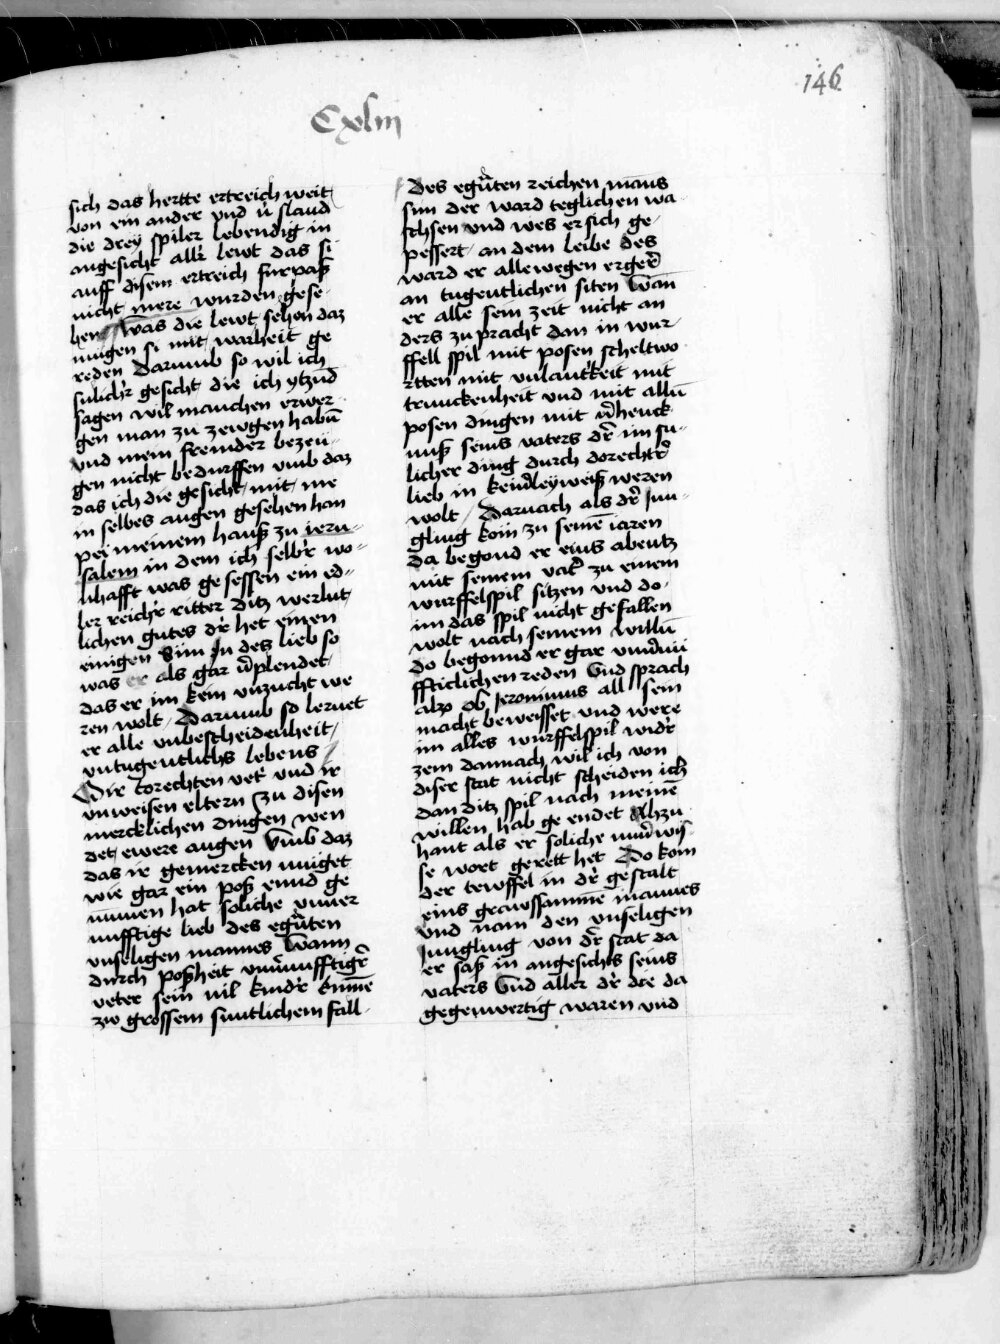 146
Cxliii
sich das hertte ertreich weit
von ein ander und v̓sland
die drey spiler lebendig in
angesicht all̓r lewt das si
auff disem ertreich furpaß
nicht mere wurden gese-
hen Was die lewt sehen daz
mugen si mit warheit ge
reden Darumb so wil ich
sulich̓r gesicht die ich ytzund
sagen wil manchen erwer
gen man zu zewgen habn̄
und mein fremder bezeu-
gen nicht bedurffen umb daz
das ich die gesicht mit me
in selbes augen gesehen han
pei meinem hauß zu ieru-
salem in dem ich selb̓r wo-
nhafft was gesessen ein ed-
ler reich̓r ritter ditz werlut
lichen gutes d̓r het einen
einigen Sun In des lieb so
was er als gar v̓plendet
das er im kein unzucht we
ren wolt Darumb so lernet
er alle unbescheidenheit
untugentlichs lebens
O Ir torechten vet̓r und ir
unweisen eltern zu disen
mercklichen dingen wen
det ewere augen Umb daz
das ir gemercken muget
wie gar ein poß ennd ge
numen hat soliche unuer
nufftige lieb des eguten
unseligen mannes Wann
durch poßheit unu̓nufftig̓r
veter sein vil kind̓r kume
zw grossem suntlichem fall
Des eguten reichen mans
sun der ward teglichen wa
schsen und wes er sich ge
pessert an dem leibe des
ward er allewegen erger̓
an tugentlichen siten Wan
er alle sein zeit nicht an
ders zu pracht dan in wur
ffell spil mit posen scheltwo
rtten mit unlautkeit mit
trunckenheit und mit alln̄
posen dingen mit v̓henck
nuß seins vaters d̓r im su-
licher ding durch dorecht̓r
lieb in keinleyweiß weren
wolt Darnach als d̓r Jun-
gling kom zu seinē iaren
da begond er eins abentz
mit seinem vat̓ zu einem
wurffelspil sitzen und do
im das spil nicht gefallen
wolt nach seinem willn̄
do begonnd er gar unv̓nu
ffticlichen reden Und sprach
also Ob Jeronimus all sein
macht beweisset und were
im alles wurffelspil wid̓r
zem dannach wil ich von
diser stat nicht scheiden ich
dan ditz spil nach meinē
willen hab ge endet Alzu
hant als er soliche unv̓wis
se wort gerett het Do kom
der tewffel in d̓r gestalt
eins grawssammē mannes
Und nam den unseligen
Jungling von d̓r stat da
er saß in angesichts seins
vaters Und aller d̓r die da
gegenwertig waren und